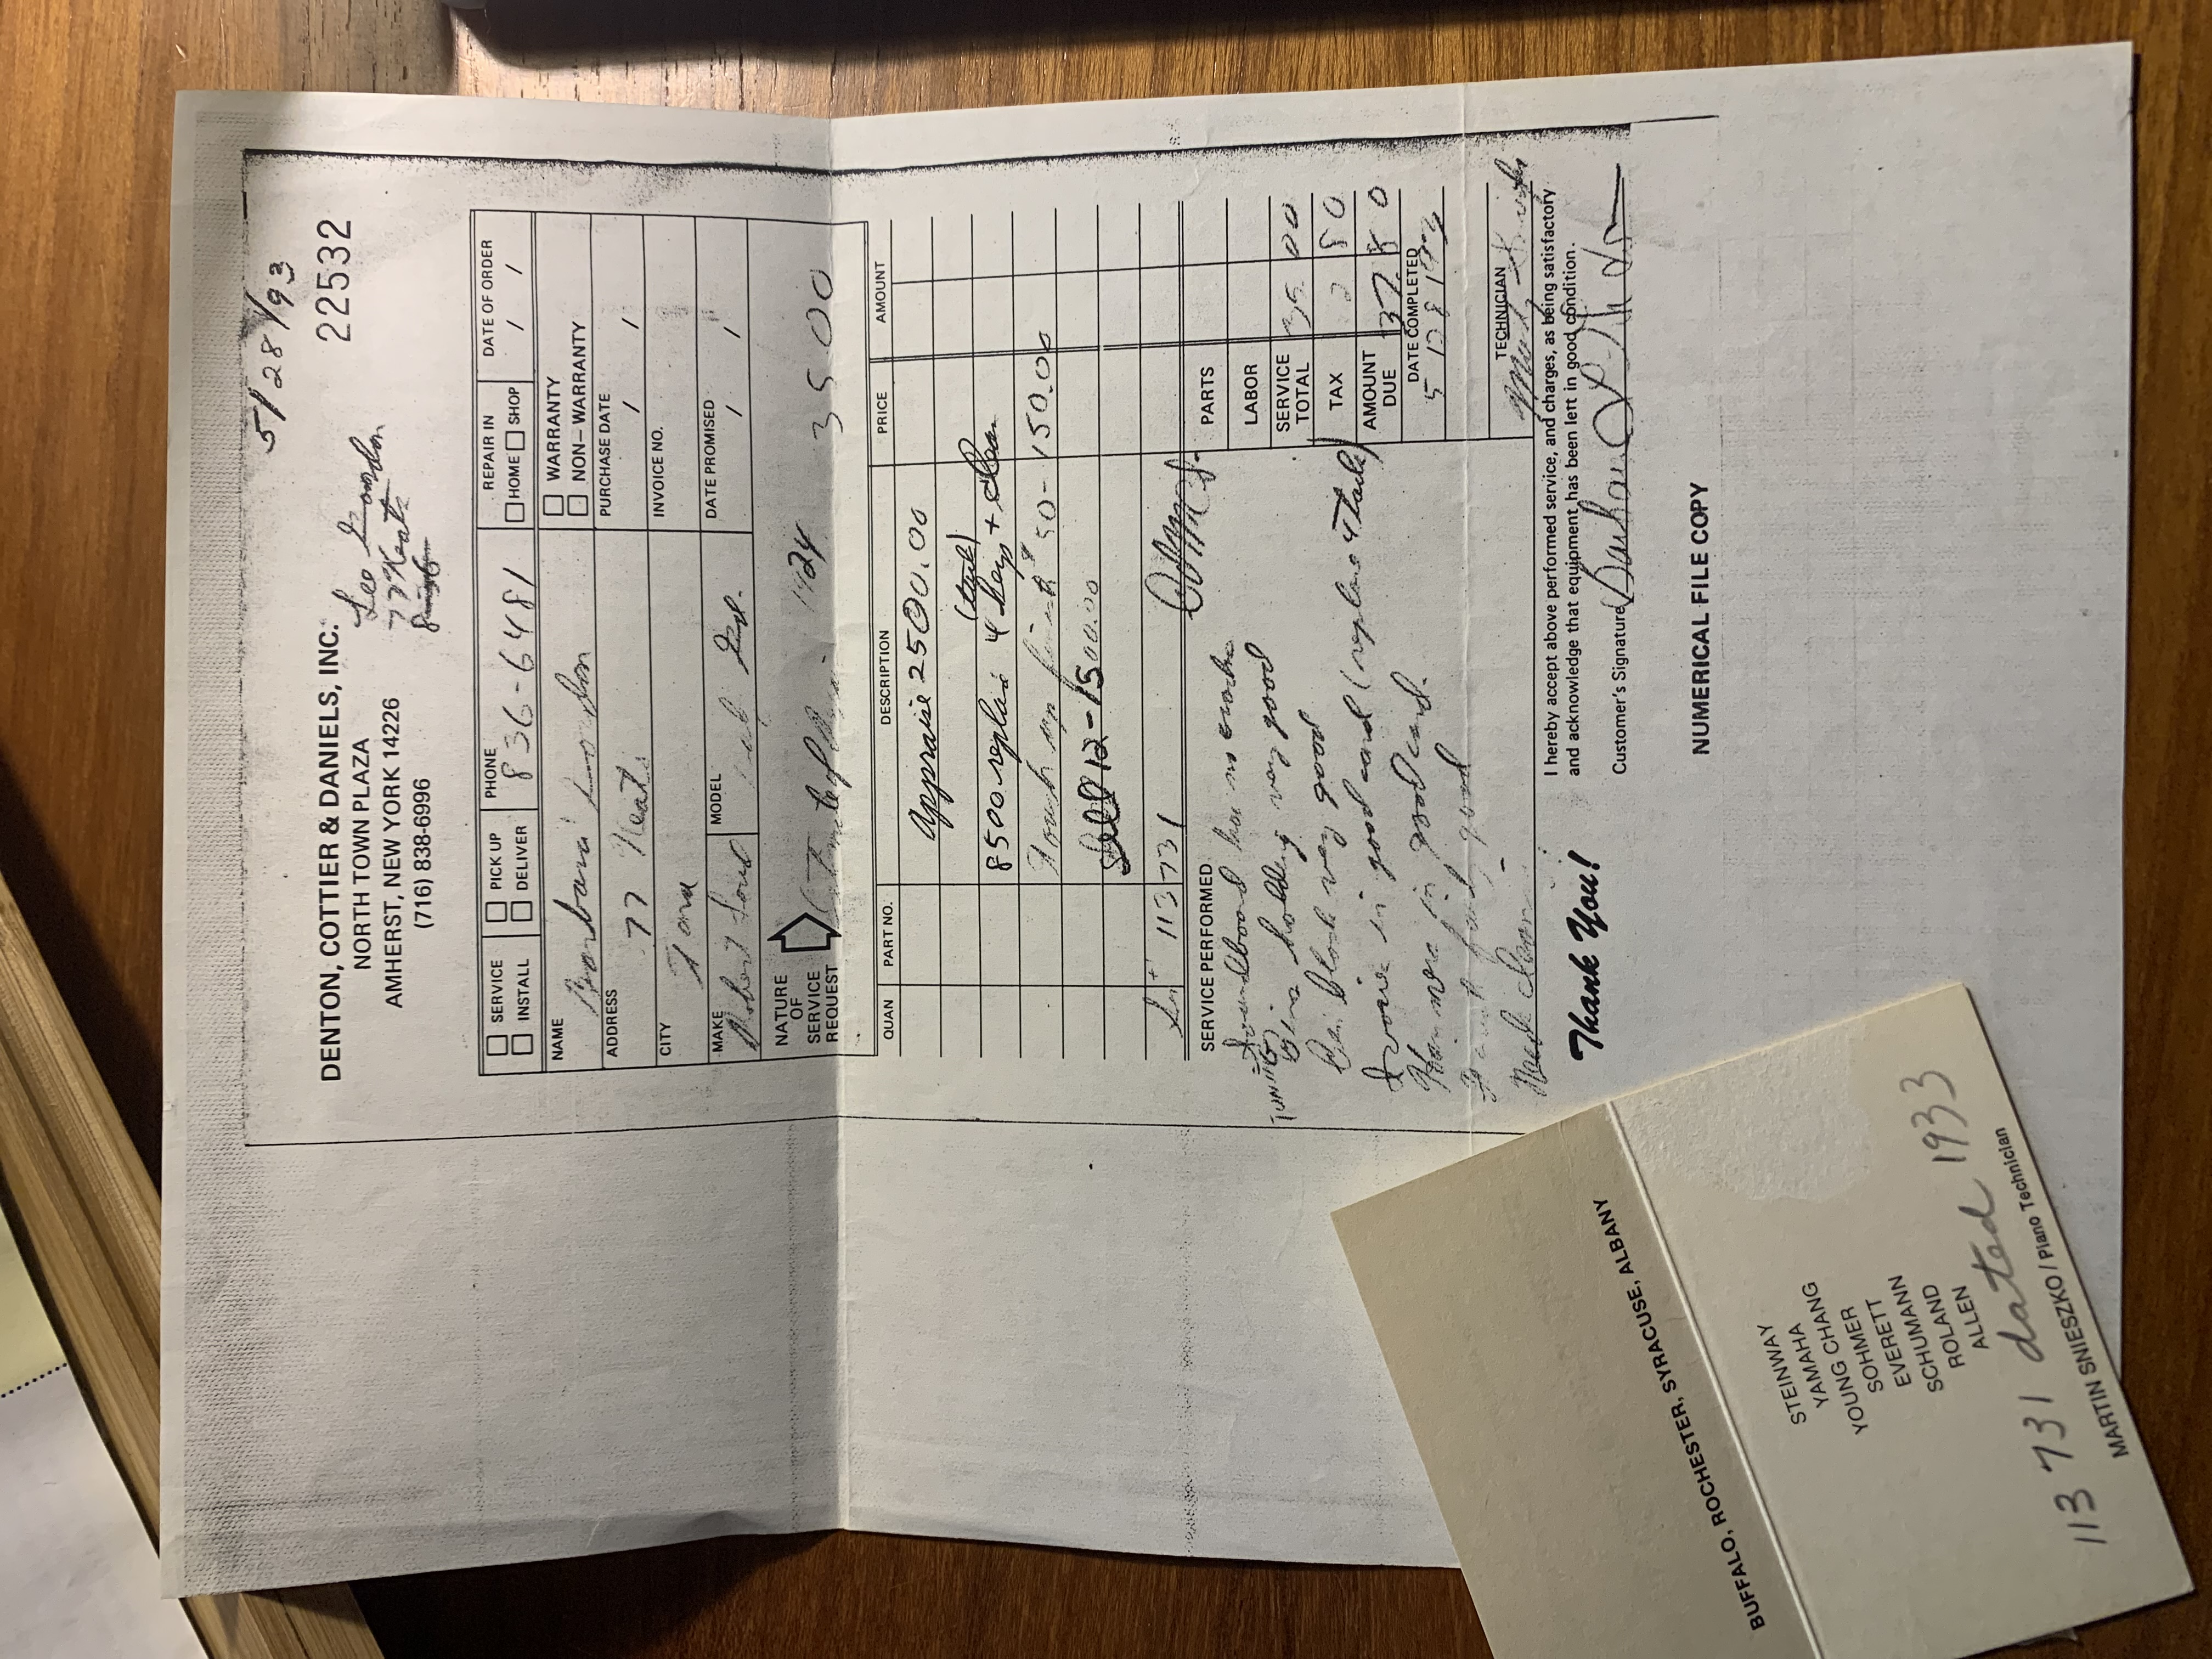 5/28/93
DENTON, COTTIER & DANIELS, INC.
NORTH TOWN PLAZA
AMHERST, NEW YORK 14226
(716) 838-6996
Lee
77 Keats
22532
SERVICE
PICK UP
INSTALL
DELIVER
PHONE
836-6481
REPAIR IN
HOME SHOP
DATE OF ORDER
/ /
NAME
Barbara
WARRANTY
NON-WARRANTY
ADDRESS
77 Keats
PURCHASE DATE
/ /
CITY
Tona
INVOICE NO.
MAKE
Robert
MODEL
DATE PROMISED
/ /
NATURE
OF
SERVICE
REQUEST
1424
35 00
QUAN
PART NO.
DESCRIPTION
PRICE
AMOUNT
appraise 2500.00
(tail)
8500. replace 4 keys + clean
Touch up finish 50-150.00
Sell 12-1500.00
113731
SERVICE PERFORMED
Soundboard has no cracks
TUNING
Pins holding very good
Pin block very good
Ivories in good cond (replace 4 tails)
Hammers in good cond.
good
Need
PARTS
LABOR
SERVICE
TOTAL
35 00
TAX
2 80
AMOUNT
DUE
37 80
DATE COMPLETED
5 / 28 / 93
TECHNICIAN
Thank You!
I hereby accept above performed service, and charges, as being satisfactory
and acknowledge that equipment has been left in good condition.
Customer's Signature
Barbara
NUMERICAL FILE COPY
BUFFALO, ROCHESTER, SYRACUSE, ALBANY
STEINWAY
YAMAHA
YOUNG CHANG
SOHMER
EVERETT
SCHUMANN
ROLAND
ALLEN
113 731 dated 1933
MARTIN SNIESZKO / Piano Technician